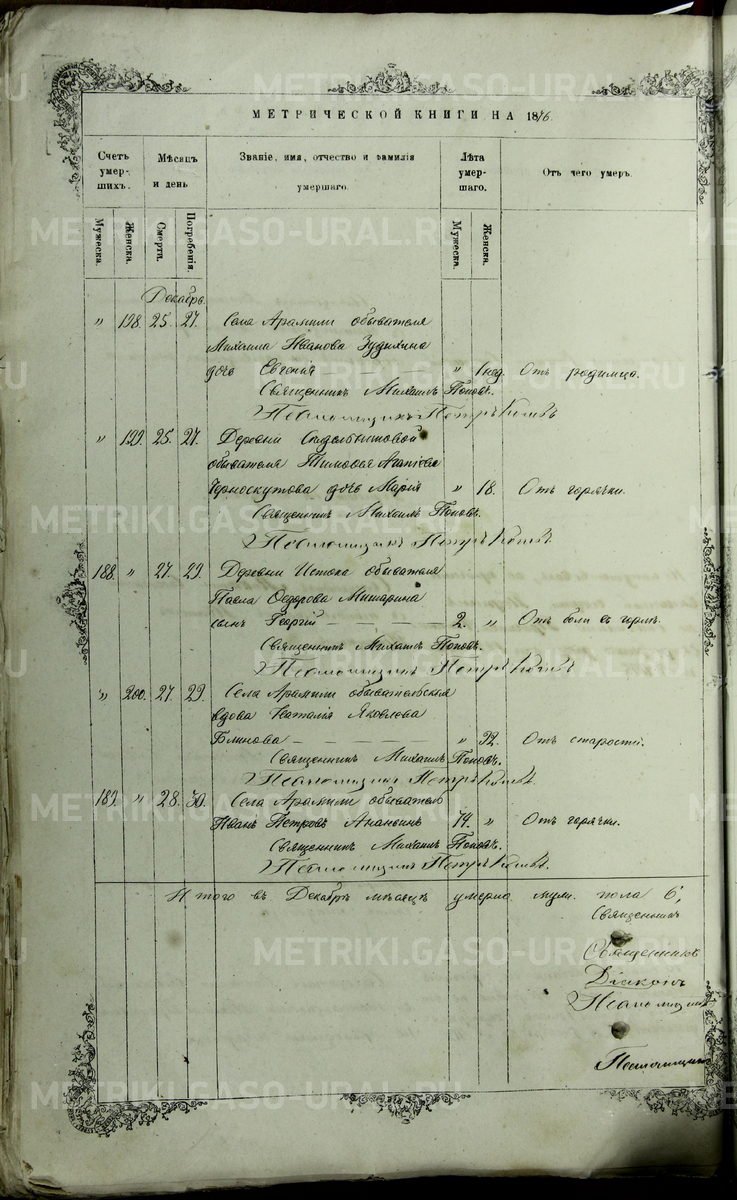 МЕТРИЧЕСКОЙ КНИГИ НА 1876.
Счетъ умер-шихъ.
Мѣсяцъ и день
Званіе, имя, отчество и фамилія умершаго.
Лѣта умер-шаго.
Отъ чего умеръ.
Мужеска.
Женска.
Смерти.
Погребенія.
Мужеска.
Женска.
Декабрь.
" 198. 25. 27. Села Арамили обывателя
Михаила Иванова Зудихина
дочь Евгенія " 1 нед. Отъ родимца.
Священникъ Михаилъ Поповъ.
Псаломщикъ Петръ
" 199. 25. 27. Деревни
обывателя Тимофея
Черноскутова дочь Марія " 18. Отъ горячки.
Священникъ Михаилъ Поповъ.
Псаломщикъ Петръ
188. " 27. 29. Деревни Истока обывателя
Павла Ѳедорова Мишарина
сынъ Георгій 2. " Отъ боли въ горлѣ.
Священникъ Михаилъ Поповъ.
Псаломщикъ Петръ
" 200. 27. 29. Села Арамили обывательская
вдова Наталія Яковлева
Блинова " 92. Отъ старости.
Священникъ Михаилъ Поповъ.
Псаломщикъ Петръ
189. " 28. 30. Села Арамили обыватель
Иванъ Петровъ Ананьинъ 74. " Отъ горячки.
Священникъ Михаилъ Поповъ.
Псаломщикъ Петръ
Итого въ Декабрѣ мѣсяцѣ умерло муж. пола 6,
Священникъ
Священникъ
Діаконъ
Псаломщикъ
Псаломщикъ
METRIKI.GASO-URAL.RU